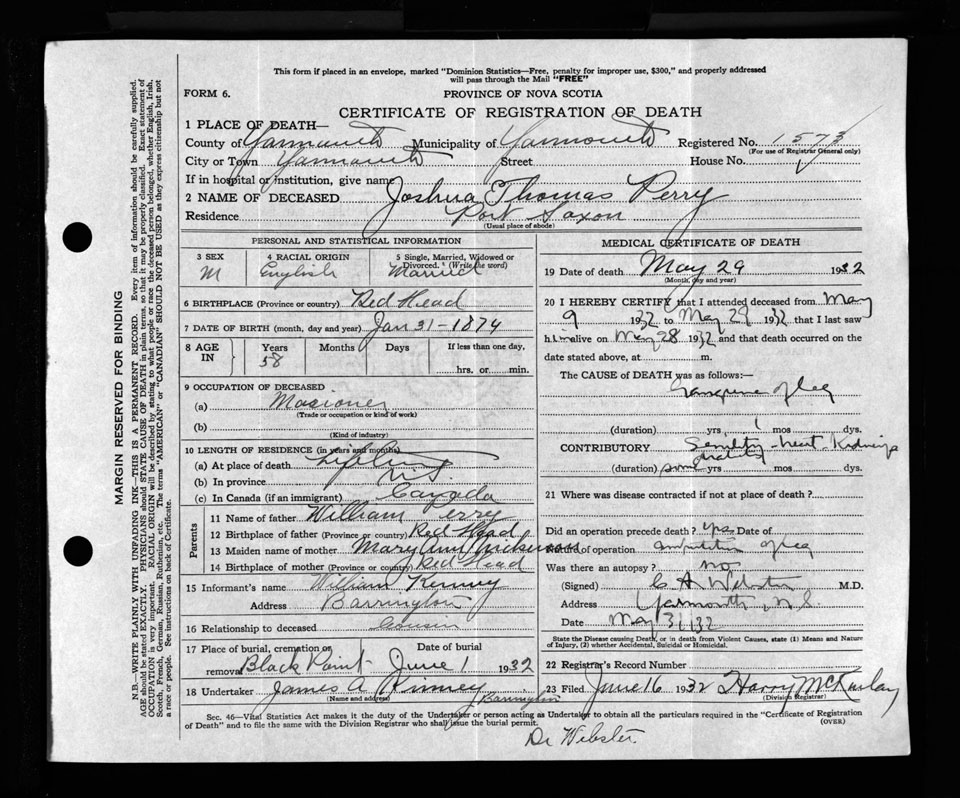 This form if placed in an envelope, marked "Dominion Statistics—Free, penalty for improper use, $300," and properly addressed
will pass through the Mail "FREE"
FORM 6.
PROVINCE OF NOVA SCOTIA
CERTIFICATE OF REGISTRATION OF DEATH
1 PLACE OF DEATH—
County of Yarmouth Municipality of Yarmouth Registered No. 1573
(For use of Registrar General only)
City or Town Yarmouth Street House No.
If in hospital or institution, give name
2 NAME OF DECEASED Joshua Thomas Perry
Residence Port Saxon
(Usual place of abode)
PERSONAL AND STATISTICAL INFORMATION
3 SEX 4 RACIAL ORIGIN 5 Single, Married, Widowed or
Divorced. (Write the word)
M English Married
6 BIRTHPLACE (Province or country) Red Head
7 DATE OF BIRTH (month, day and year) Jan 31-1874
8 AGE IN Years Months Days If less than one day,
58
hrs. or min.
9 OCCUPATION OF DECEASED
(a)
(Trade or occupation or kind of work)
(b)
(Kind of industry)
10 LENGTH OF RESIDENCE (in years and months)
(a) At place of death
(b) In province N.S.
(c) In Canada (if an immigrant) Canada
Parents
11 Name of father William Perry
12 Birthplace of father (Province or country) Red Head
13 Maiden name of mother Mary Ann
14 Birthplace of mother (Province or country) Red Head
15 Informant's name William Kenney
Address Barrington
16 Relationship to deceased Cousin
17 Place of burial, cremation or Date of burial
removal Black Point June 1 1932
18 Undertaker James A Kinney Barrington
(Name and address)
MEDICAL CERTIFICATE OF DEATH
19 Date of death May 29 1932
(Month, day and year)
20 I HEREBY CERTIFY that I attended deceased from May
9 1932 to May 29 1932 that I last saw
him alive on May 28 1932 and that death occurred on the
date stated above, at m.
The CAUSE of DEATH was as follows:—
Gangrene of leg
(duration) yrs. 1 mos dys.
CONTRIBUTORY Senility - heart Kidneys
(duration) some yrs mos dys.
21 Where was disease contracted if not at place of death?
Did an operation precede death? yes Date of
Kind of operation amputation of leg
Was there an autopsy? no
(Signed) C A Webster M.D.
Address Yarmouth, N.S.
Date May 31/32
State the Disease causing Death, or in death from Violent Causes, state (1) Means and Nature
of Injury, (2) whether Accidental, Suicidal or Homicidal.
22 Registrar's Record Number
23 Filed June 16 1932 Harry McKinlay
(Division Registrar)
Sec. 46—Vital Statistics Act makes it the duty of the Undertaker or person acting as Undertaker to obtain all the particulars required in the "Certificate of Registration
of Death" and to file the same with the Division Registrar who shall issue the burial permit. (OVER)
Dr Webster
MARGIN RESERVED FOR BINDING
N.B.—WRITE PLAINLY WITH UNFADING INK—THIS IS A PERMANENT RECORD. Every item of information should be carefully supplied.
AGE should be stated EXACTLY. PHYSICIANS should STATE CAUSE OF DEATH in plain terms, so that it may be properly classified. Exact statement of
OCCUPATION is very important. RACIAL ORIGIN will be described by stating to what people or race the deceased person belonged, whether English, Irish,
Scotch, French, German, Russian, Ruthenian, etc. The terms "AMERICAN" or "CANADIAN" SHOULD NOT BE USED as they express citizenship but not
a race or people. See instructions on back of Certificate.